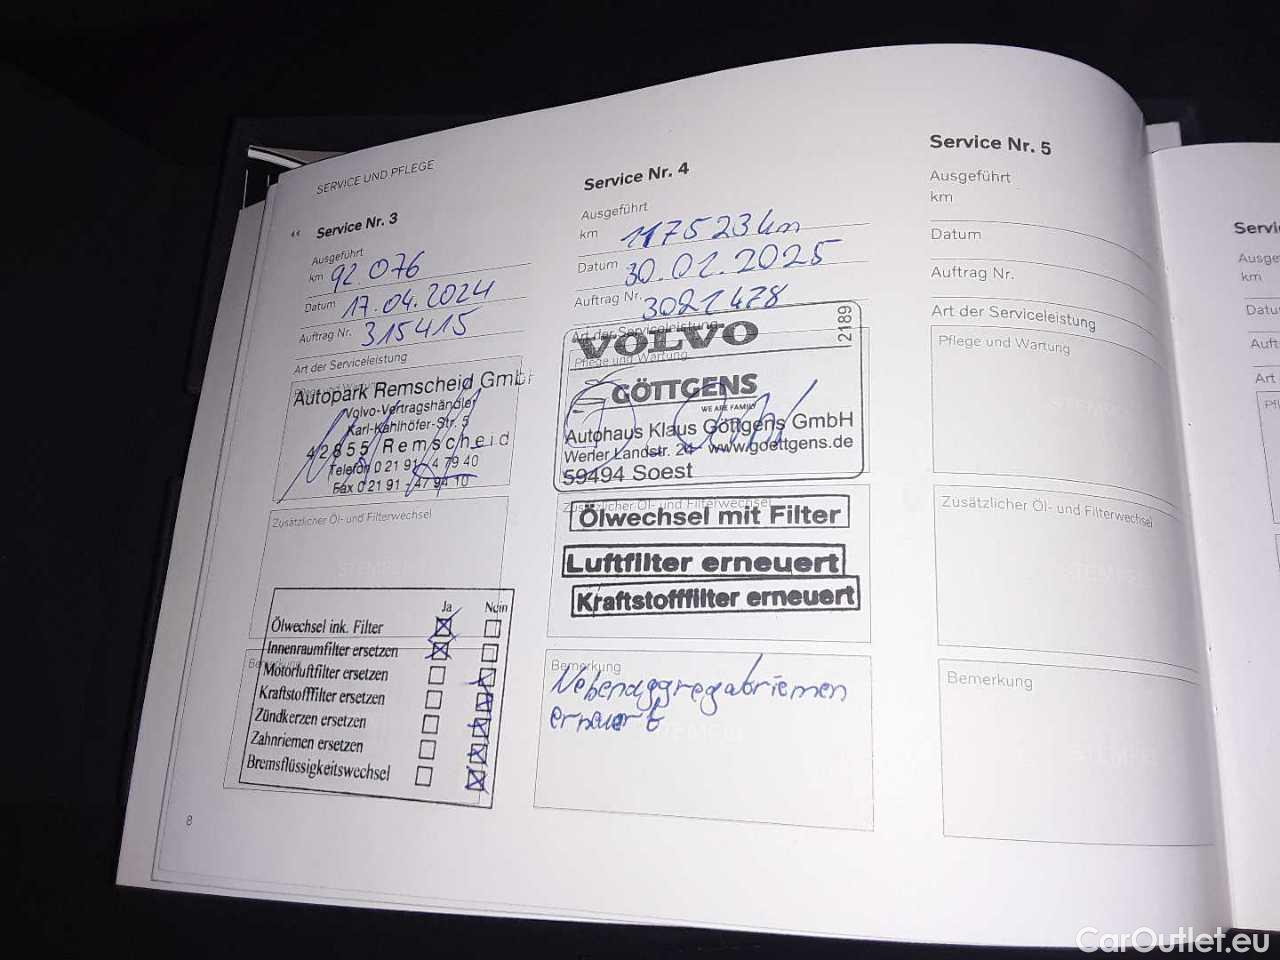 SERVICE UND PFLEGE
Service Nr. 3
Ausgeführt
km 92.076
Datum 17.04.2024
Auftrag Nr. 315415
Art der Serviceleistung
Autopark Remscheid GmbH
Volvo-Vertragshändler
Karl-Kahlhöfer-Str. 5
42855 Remscheid
Telefon 0 21 91 - 4 79 40
Fax 0 21 91 - 47 94 10
Zusätzlicher Öl- und Filterwechsel
STEMPEL
Ja Nein
Ölwechsel ink. Filter
Innenraumfilter ersetzen
Bemerkung
Motorluftfilter ersetzen
Kraftstofffilter ersetzen
Zündkerzen ersetzen
Zahnriemen ersetzen
Bremsflüssigkeitswechsel
8
Service Nr. 4
Ausgeführt
km 117523 km
Datum 30.01.2025
Auftrag Nr. 3021478
Art der Serviceleistung
VOLVO
2189
Pflege und Wartung
GÖTTGENS
WE ARE FAMILY
Autohaus Klaus Göttgens GmbH
Werler Landstr. 24 - www.goettgens.de
59494 Soest
Zusätzlicher Öl- und Filterwechsel
Ölwechsel mit Filter
Luftfilter erneuert
Kraftstofffilter erneuert
Bemerkung
Nebenaggregatriemen
erneuert
STEMPEL
Service Nr. 5
Ausgeführt
km
Datum
Auftrag Nr.
Art der Serviceleistung
Pflege und Wartung
STEMPEL
Zusätzlicher Öl- und Filterwechsel
STEMPEL
Bemerkung
STEMPEL
km
Art
CarOutlet.eu